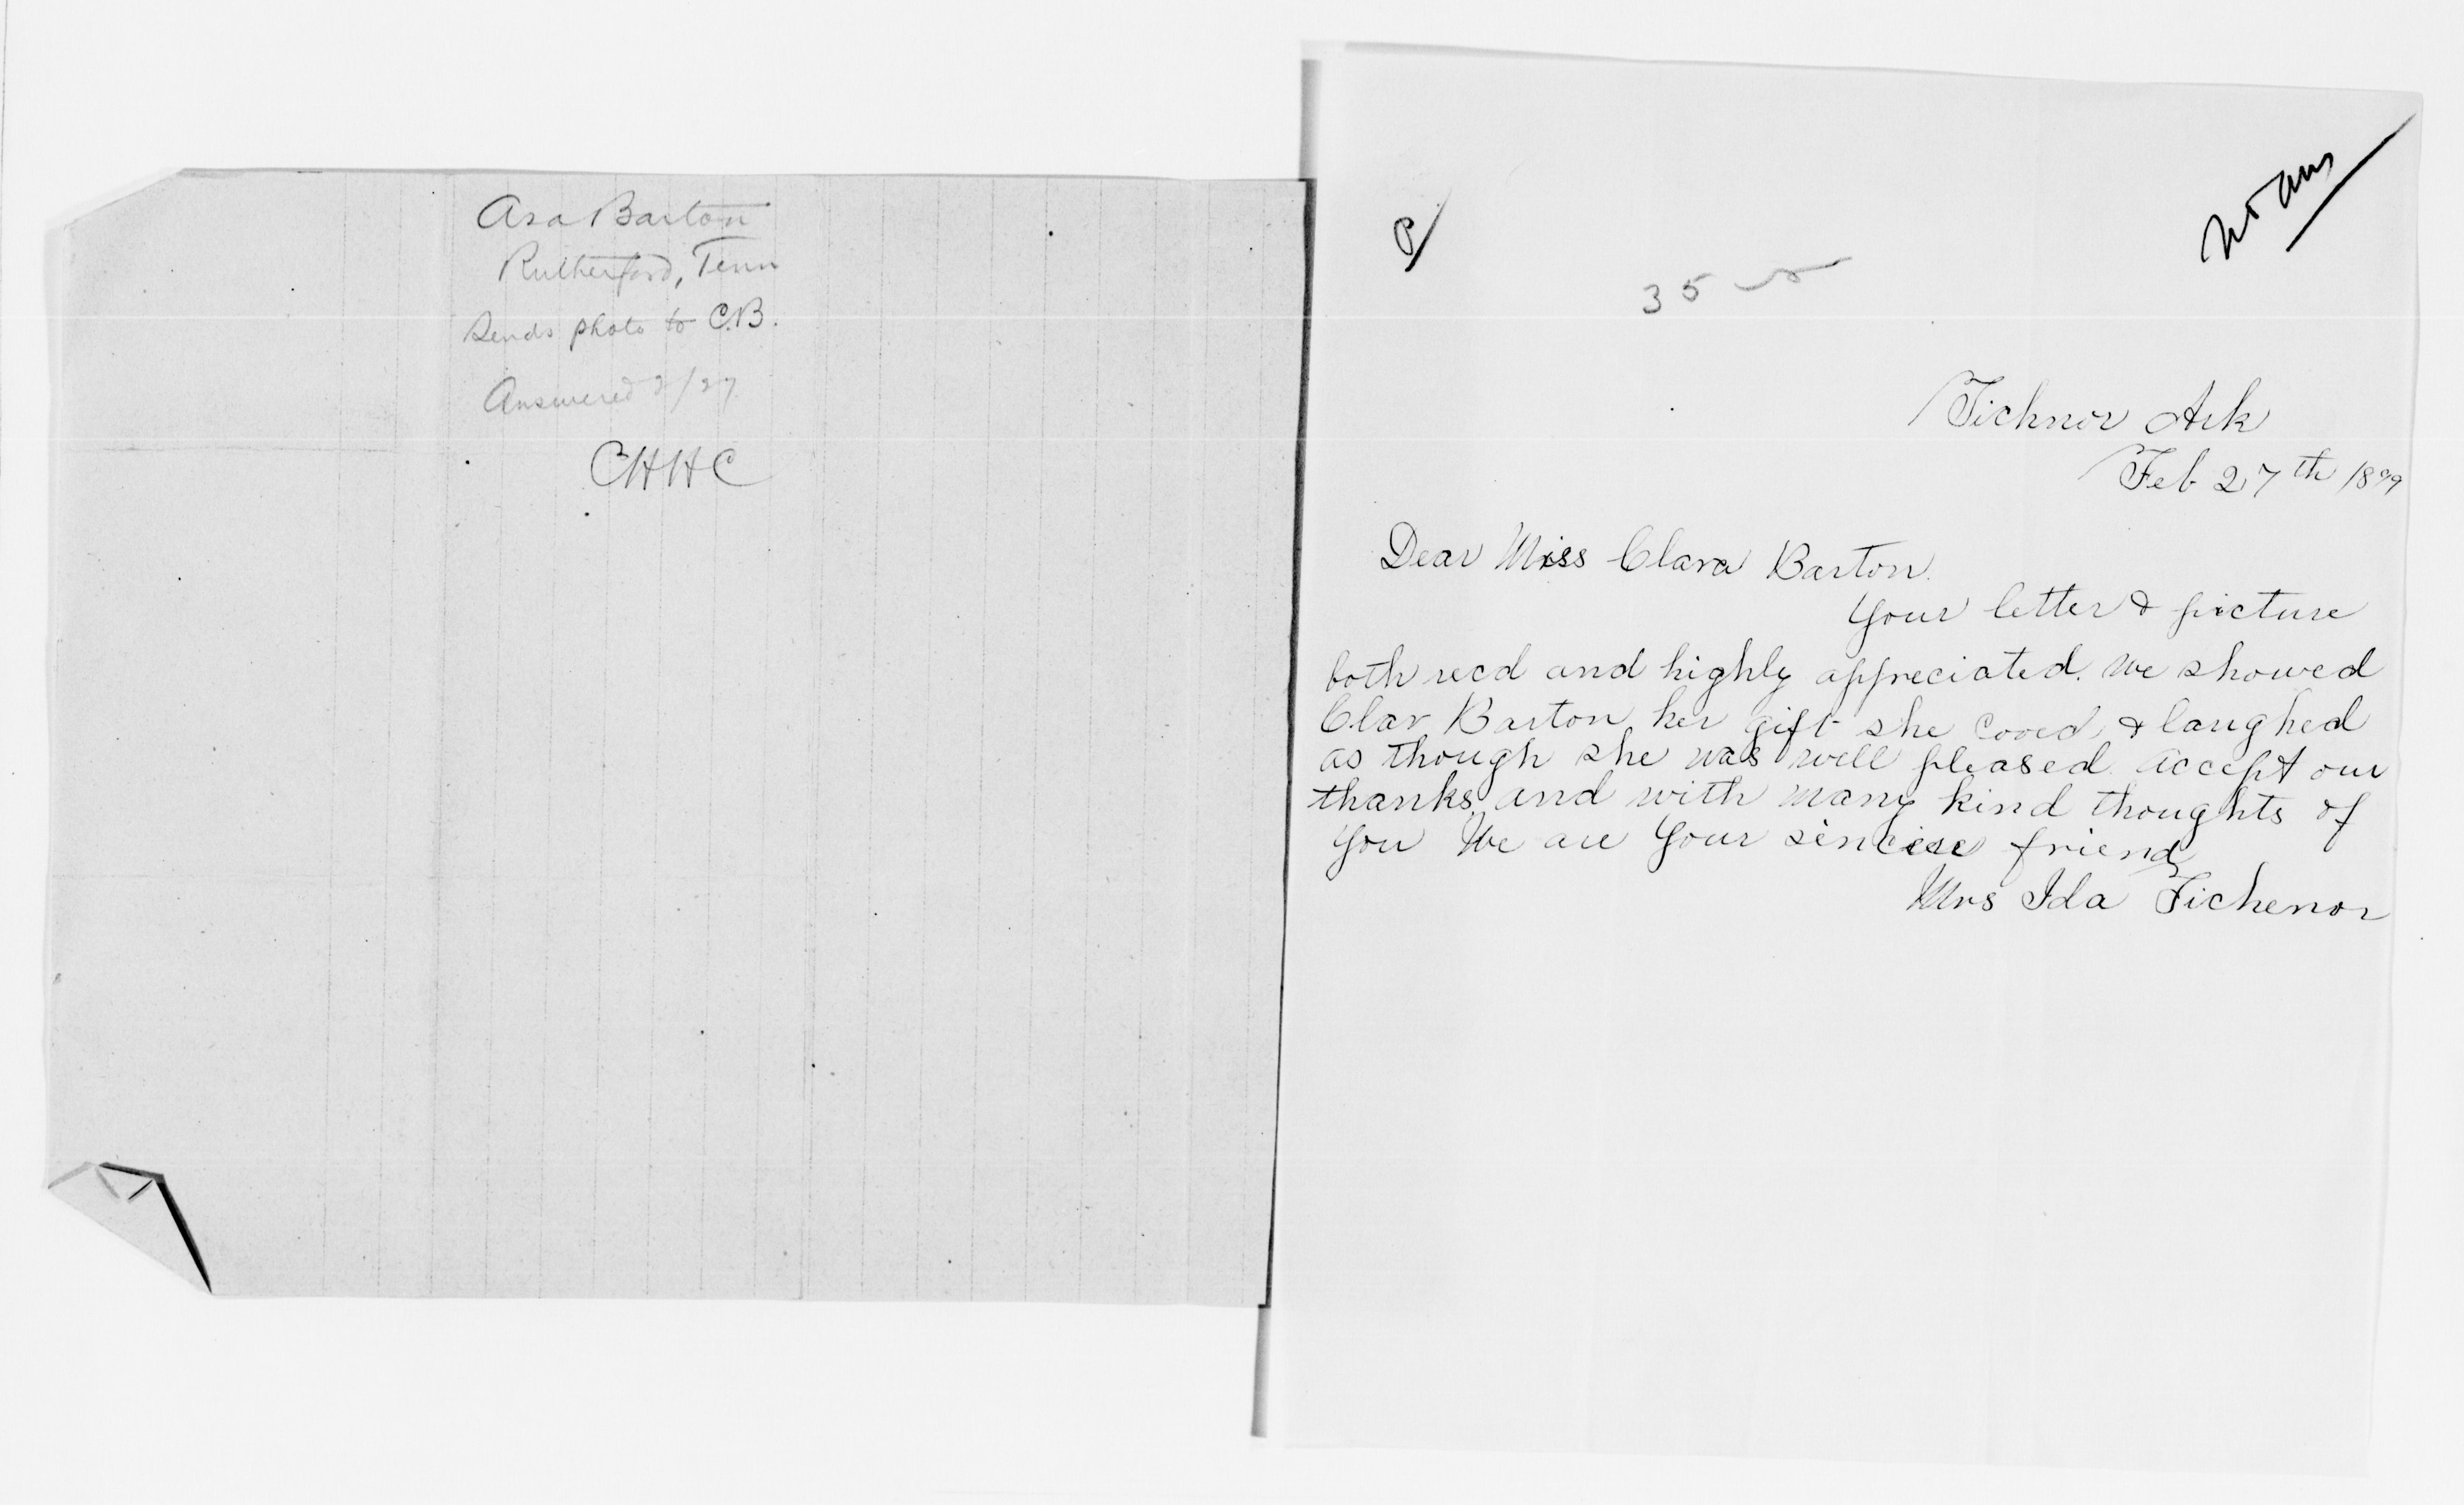 Asa Barton
Rutherford, Tenn
Sends photo to C.B.
Answered 2/27
CHHC
P
no ans
35
Tichnor Ark
Feb 27th 1899
Dear Miss Clara Barton.
Your letter & picture
both recd and highly appreciated. We showed
Clar Barton her gift she cooed & laughed
as though she was well pleased. Accept our
thanks, and with many kind thoughts of
you We are Your sincere friends
Mrs Ida Tichenor